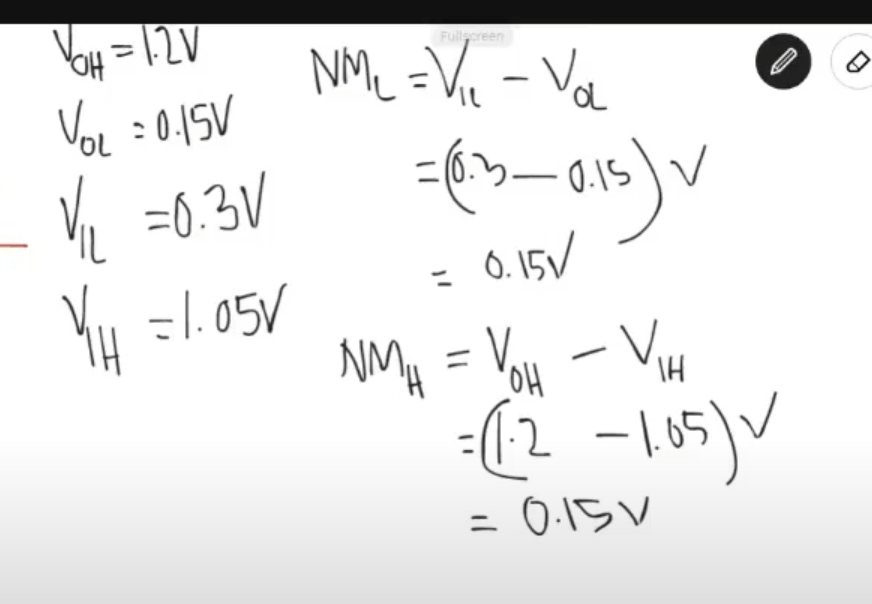 Fullscreen
V_OH = 1.2V
V_OL = 0.15V
V_IL = 0.3V
V_IH = 1.05V
NM_L = V_IL - V_OL
= (0.3 - 0.15) V
= 0.15V
NM_H = V_OH - V_IH
= (1.2 - 1.05) V
= 0.15V